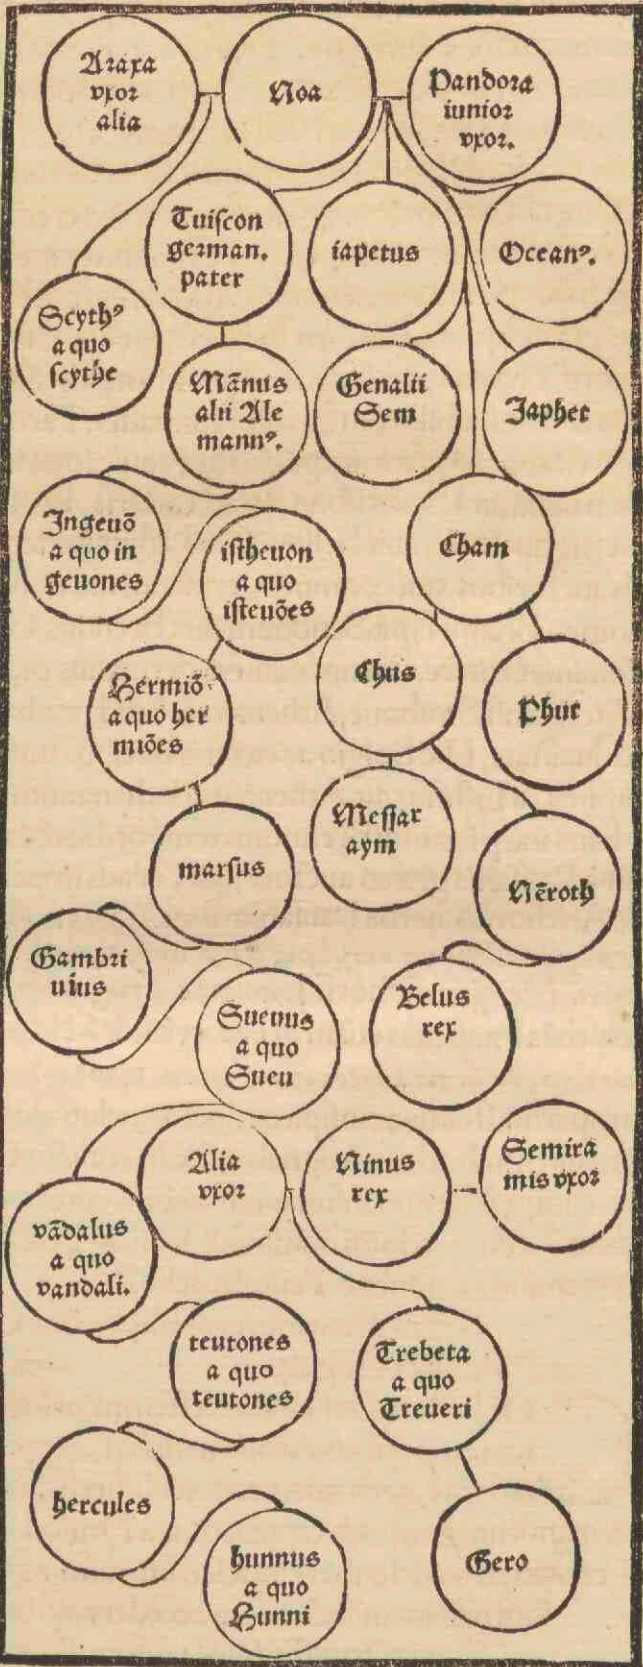 Araxa
vxor
alia
Noa
Pandora
iunior
vxor.
Tuiſcon
german.
pater
iapetus
Oceanꝰ.
Scythꝰ
a quo
ſcythe
Mānus
alii Ale
mannꝰ.
Genalii
Sem
Japhet
Ingeuō
a quo in
geuones
iſtheuon
a quo
iſteuōes
Cham
Hermiō
a quo her
miōes
Chus
Phut
marſus
Meſſar
aym
Nēroth
Gambri
uius
Sueuus
a quo
Sueu
Belus
rex
vādalus
a quo
vandali.
Alia
vxor
Ninus
rex
Semira
mis vxor
teutones
a quo
teutones
Trebeta
a quo
Treueri
hercules
hunnus
a quo
Hunni
Gero